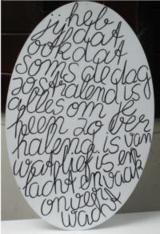 heb
jij dat
ook dat
soms de dag
zo stralend is
alles om je
heen zo ver
halend is van
wat lief is en
zacht en vaak
onver
wacht